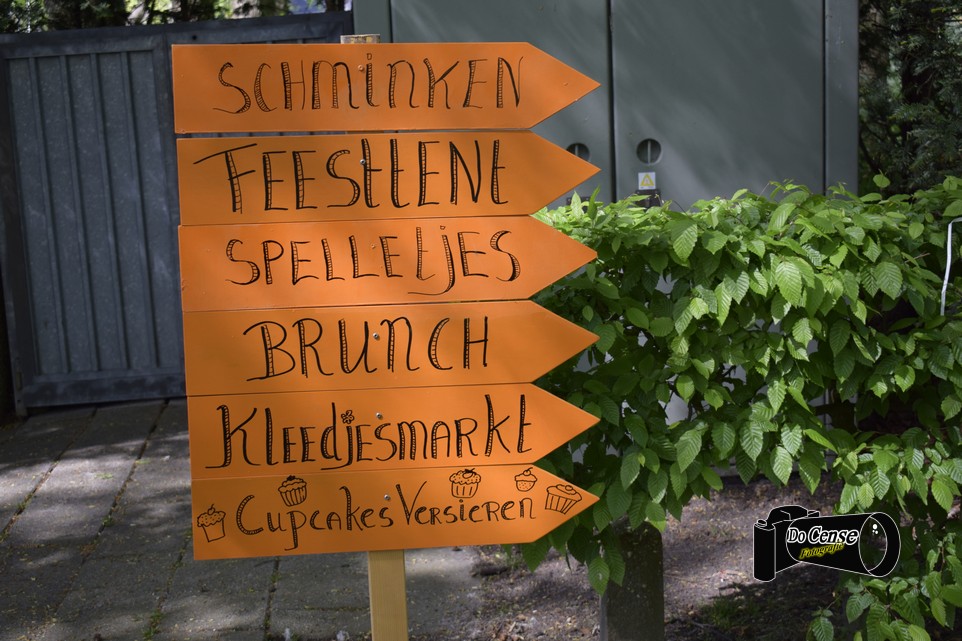 SCHMINKEN
FEESTTENT
SPELLETJES
BRUNCH
KLEEDJESMARKT
CUPCAKES VERSIEREN
Do Cense
Fotografie